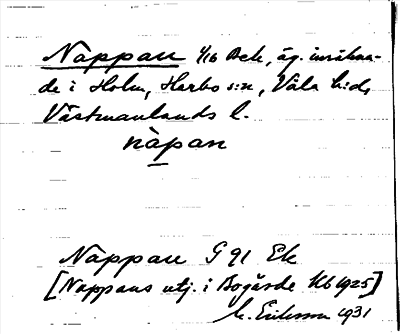 Nappan 1/16 Bek, äg. inräkna-
de i Holm, Harbo s:n, Våla h:d,
Västmanlands l.
nàpan
Nappan G 91 Ek
[Nappans utj. i Bogärde Kb 1925]
M. Eriksson 1931